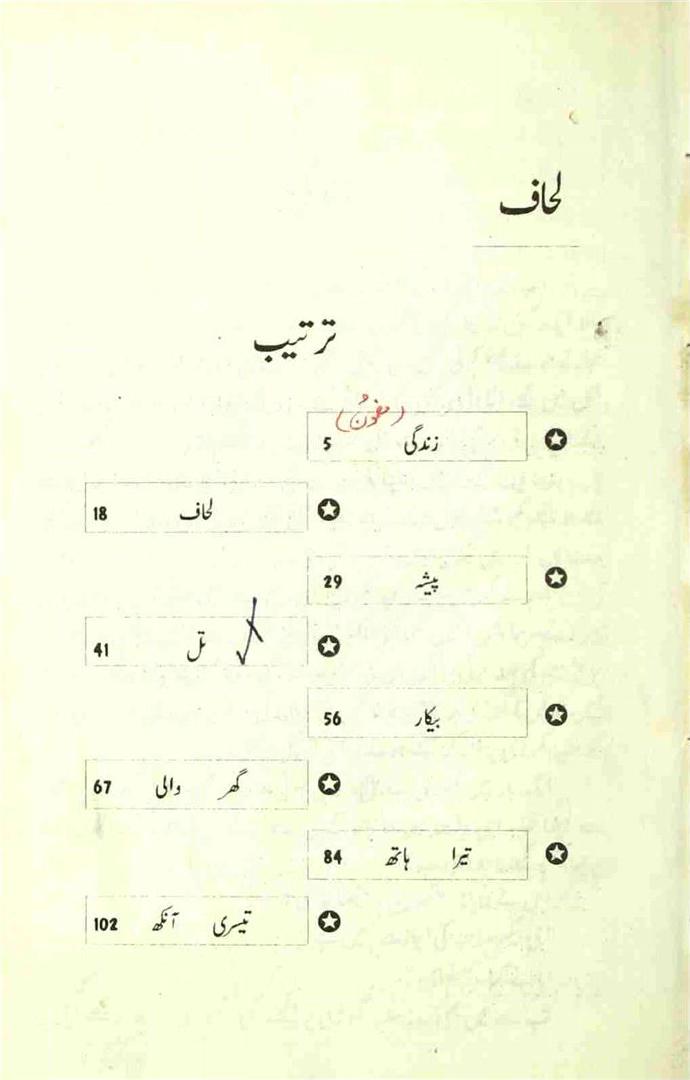 لحاف
ترتیب
(مضمون)
زندگی 5
لحاف 18
پیشہ 29
تل 41
بیکار 56
گھر والی 67
تیرا ہاتھ 84
تیسری آنکھ 102